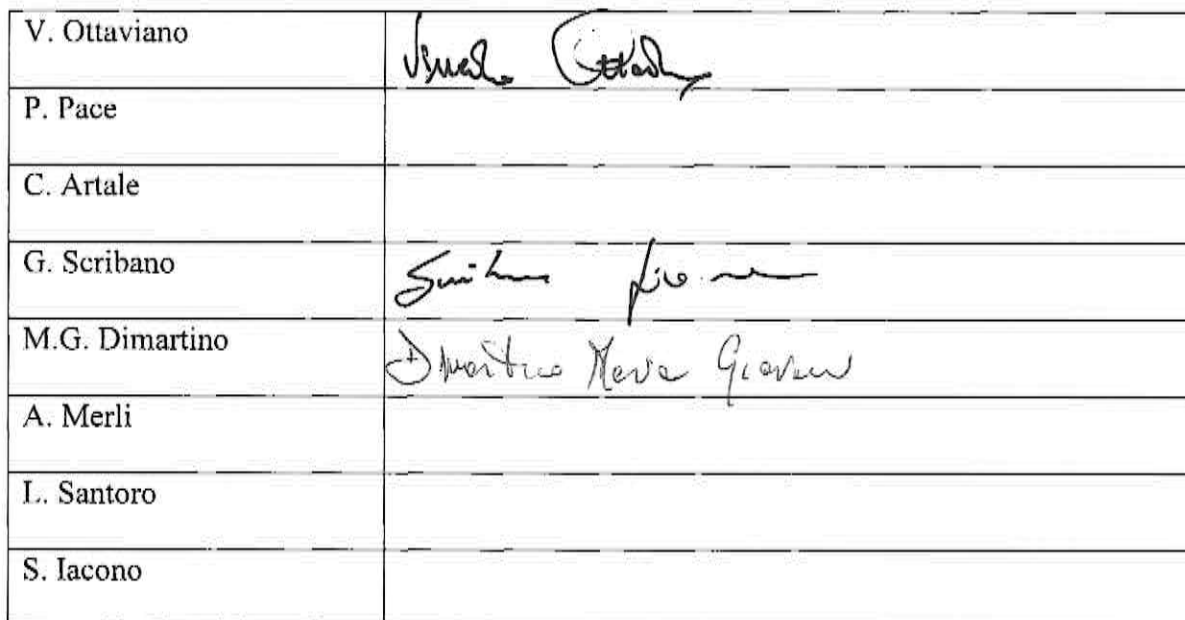 V. Ottaviano
P. Pace
C. Artale
G. Scribano
M.G. Dimartino
Dimartino Maria
A. Merli
L. Santoro
S. Iacono